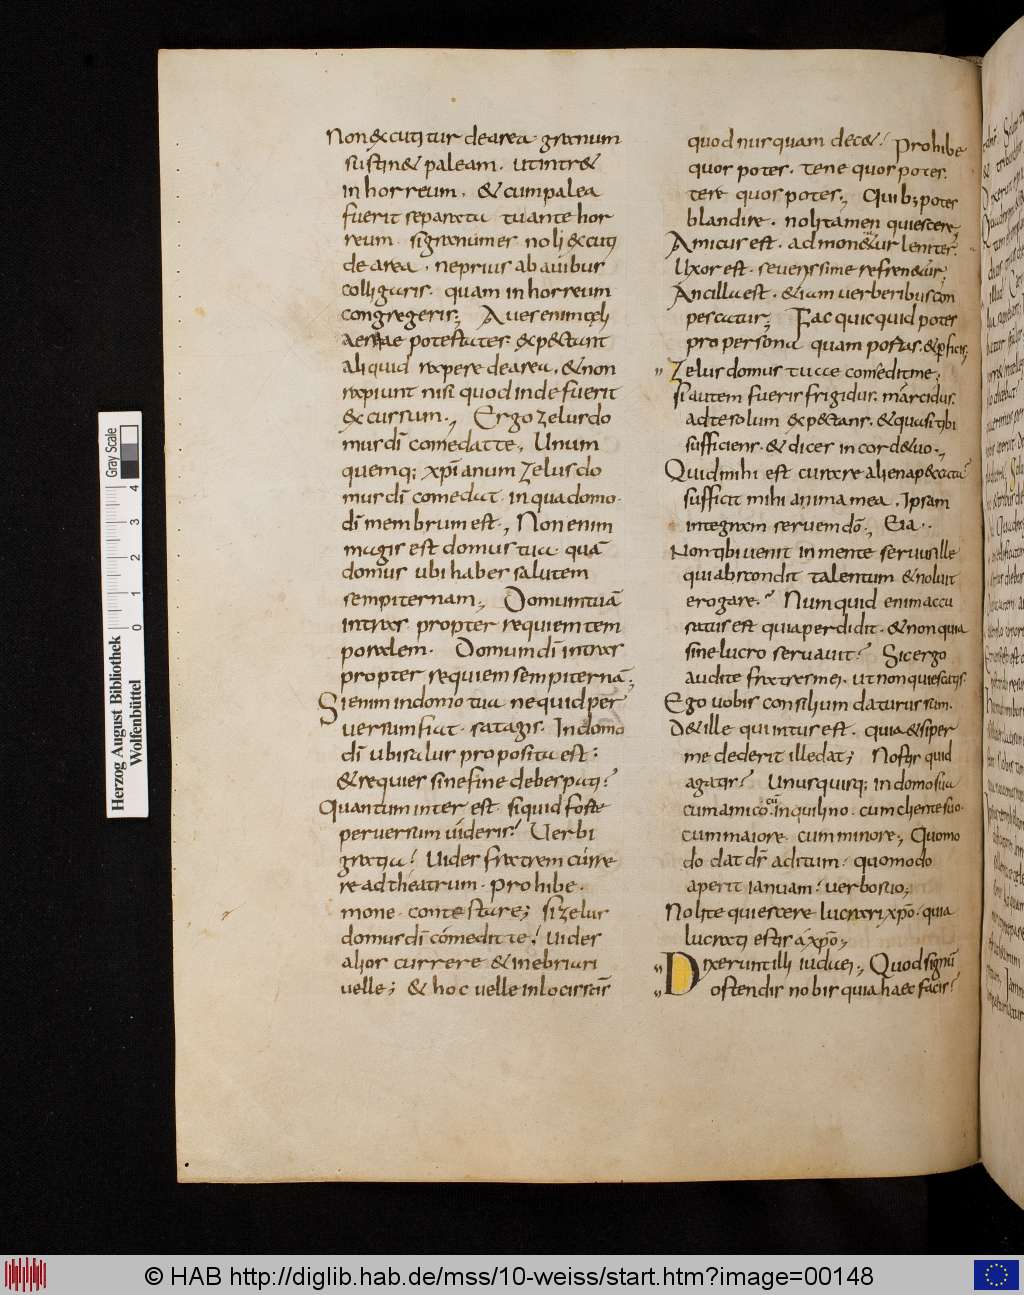 Non excutitur de area. granum
sustinet paleam. ut intret
in horreum. & cum palea
fuerit separata tu ante hor
reum. si granum es noli excuti
de area. ne prius ab auibus
colligaris. quam in horreum
congregeris; Aues enim celi
aereae potestates. exspectant
aliquid rapere de area. & non
rapiunt nisi quod inde fuerit
excussum., Ergo zelus do
mus dī comedat te. Unum
quemq; xpīanum zelus do
mus dī comedat. in qua domo.
dī membrum est., Non enim
magis est domus tua. quā
domus ubi habes salutem
sempiternam., Domum tuā
intras. propter requiem tem
poralem. Domum dī intras
propter requiem sempiternā;
Si enim in domo tua ne quid per
uersum fiat. satagis. In domo
dī ubi salus proposita est;
& requies sine fine debes pati?
Quantum in te est. si quid forte
peruersum uideris? Uerbi
gratia? Uides fratrem curre
re ad theatrum. prohibe.
mone. contestare; si zelus
domus dī cómedit te? Uides
alios currere & inebriari
uelle; & hoc uelle in locis scīs
quod nusquam decet? Prohibe
quos potes. tene quos potes.
terre quos potes., Quib; potes
blandire. noli tamen quiescere,
Amicus est. admoneatur leniter.
Uxor est. seuerissime refrenetur;
Ancilla est. & iam uerberibus con
pescatur; Fac quicquid potes
pro persona quam portas. & perficis;
Zelus domus tuae comedit me;
si autem fueris frigidus. marcidus.
ad te solum exspectans. & quasi tibi
sufficiens. & dices in corde tuo.,
Quid mihi est curare aliena peccata?
sufficit mihi anima mea. Ipsam
integram seruem dō., Eia..
Non tibi uenit in mente seruus ille
qui abscondit talentum & noluit
erogare.? Numquid enim accu
satus est quia perdidit. & non quia
sine lucro seruauit? Sic ergo
audite fratres mei. ut non quiescatis.
Ego uobis consilium daturus sum.
Det ille qui intus est. quia & si per
me dederit ille dat; Nostis quid
agatis? Unusquisq; in domo sua
cum amico. cū inquilino. cum cliente suo.
cum maiore. cum minore., Quomo
do dat dс̄ aditum. quomodo
aperit ianuam? uerbo suo;
Nolite quiescere lucrari xpō. quia
lucrati estis á xpō;
Dixerunt illi iudaei., Quod signū
ostendis nobis quia haec facis?
Herzog August Bibliothek
Wolfenbüttel
Gray Scale
0 1 2 3 4
© HAB http://diglib.hab.de/mss/10-weiss/start.htm?image=00148